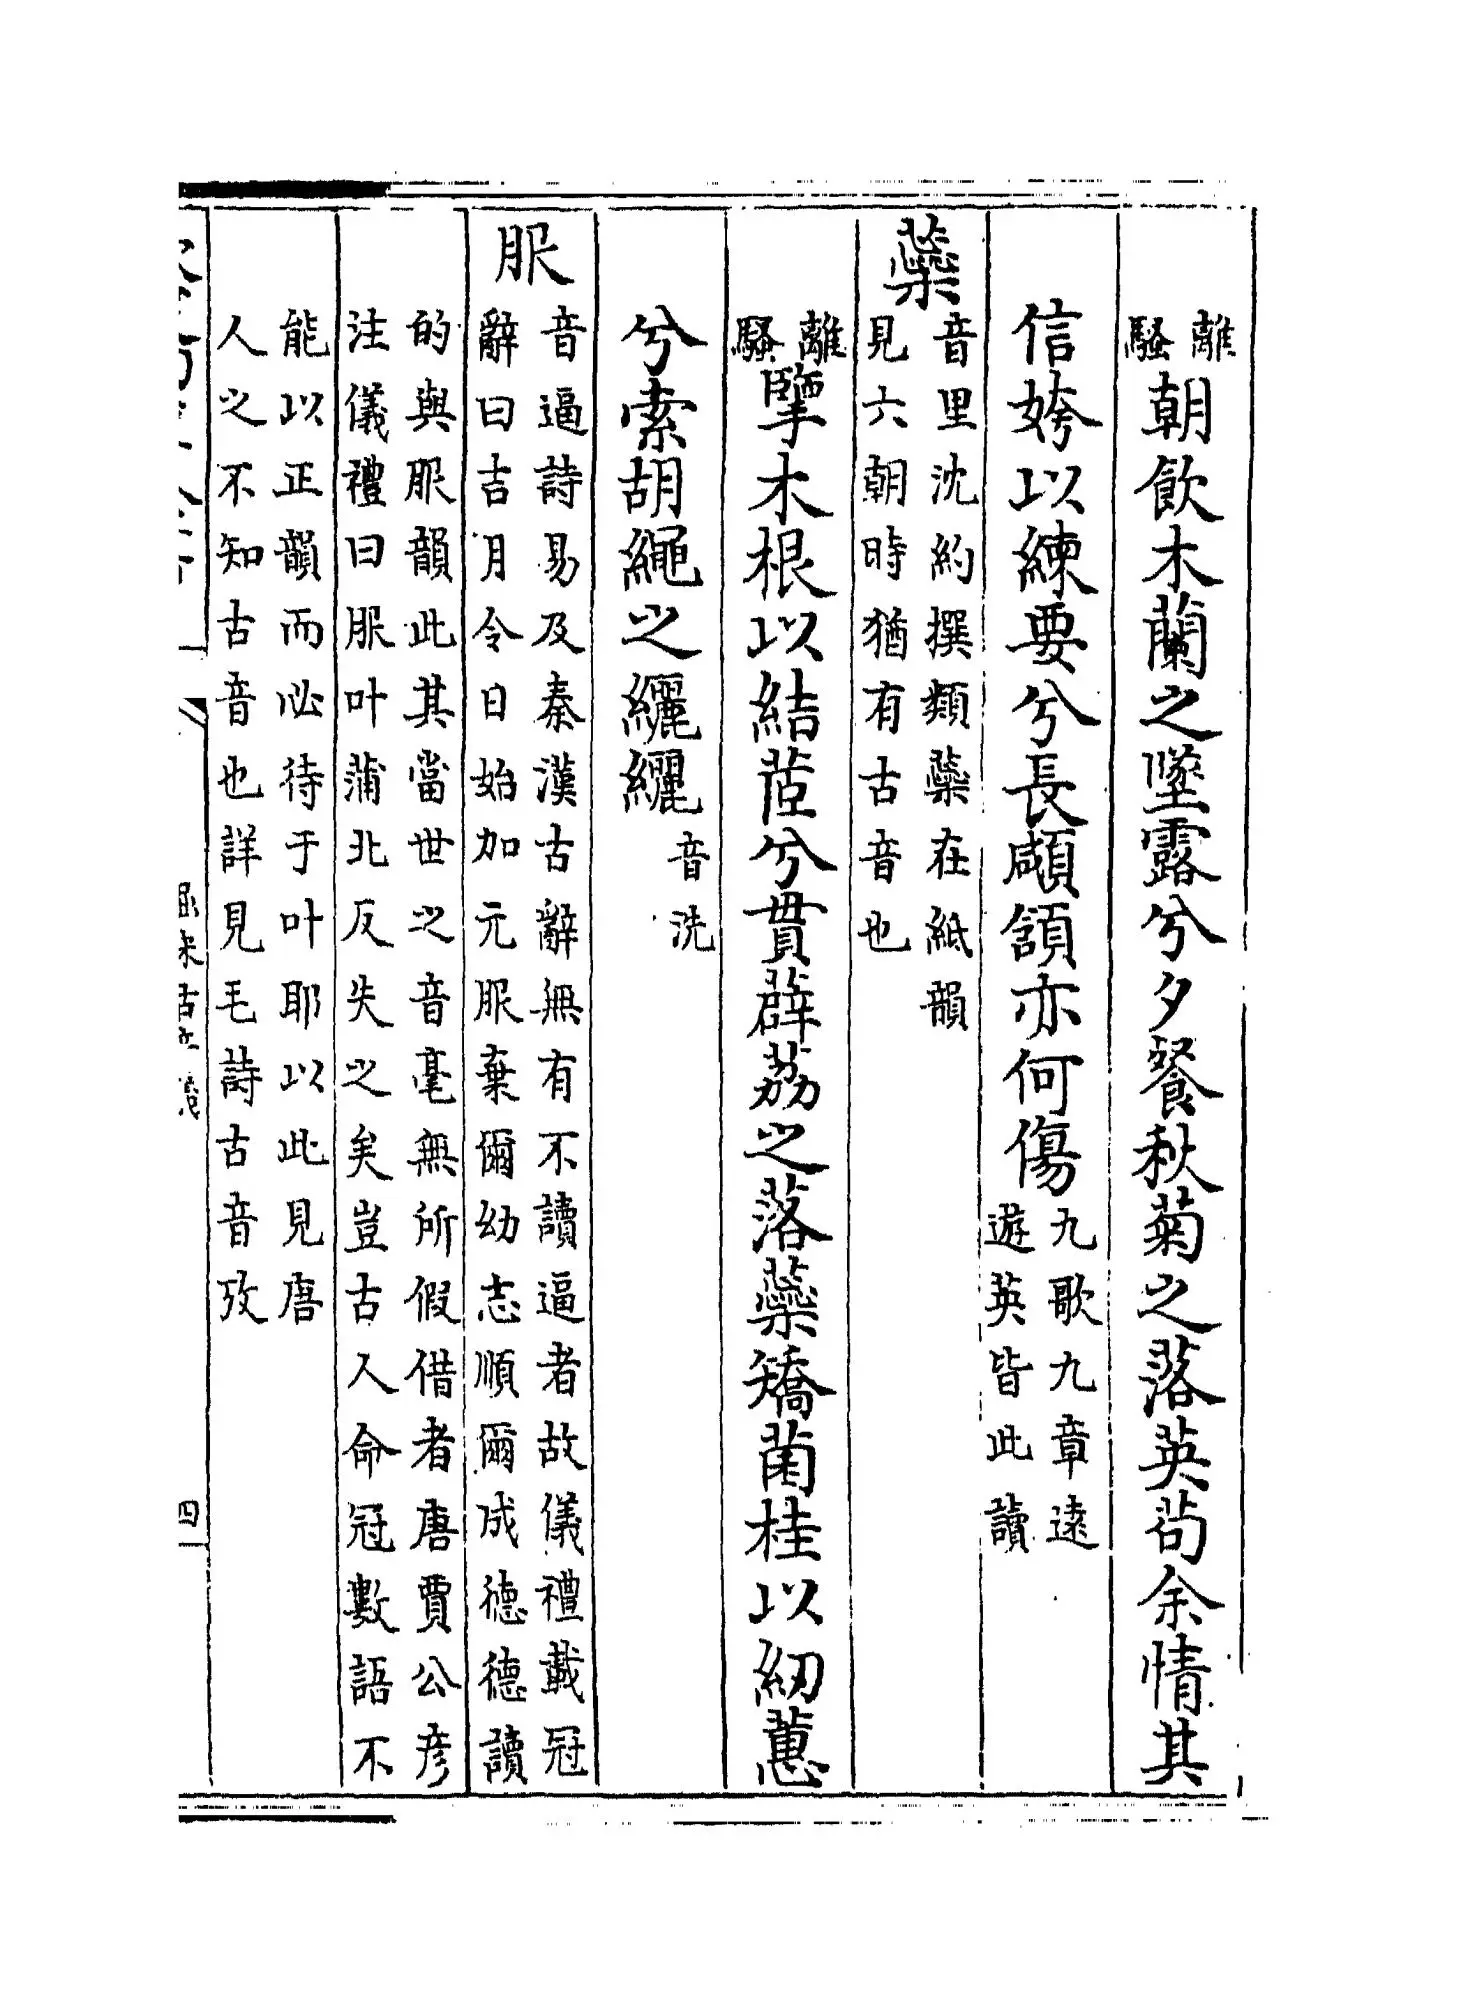 離騷朝飲木蘭之墜露兮夕餐秋菊之落英茍余情其
信姱以練要兮長顑頷亦何傷九歌九章遠遊英皆此讀
蘂音里沈約撰類蘂在紙韻見六朝時猶有古音也
離騷掔木根以結茝兮貫薜荔之落蘂矯菌桂以紉蕙
兮索胡繩之纚纚音洗
服音逼詩易及秦漢古辭無有不讀逼者故儀禮載冠
辭曰吉月令日始加元服棄爾幼志順爾成德德讀
的與服韻此其當世之音毫無所假借者唐賈公彥
注儀禮曰服叶蒲北反失之矣豈古人命冠數語不
能以正韻而必待于叶耶以此見唐
人之不知古音也詳見毛詩古音攷
屈宋古音義
四